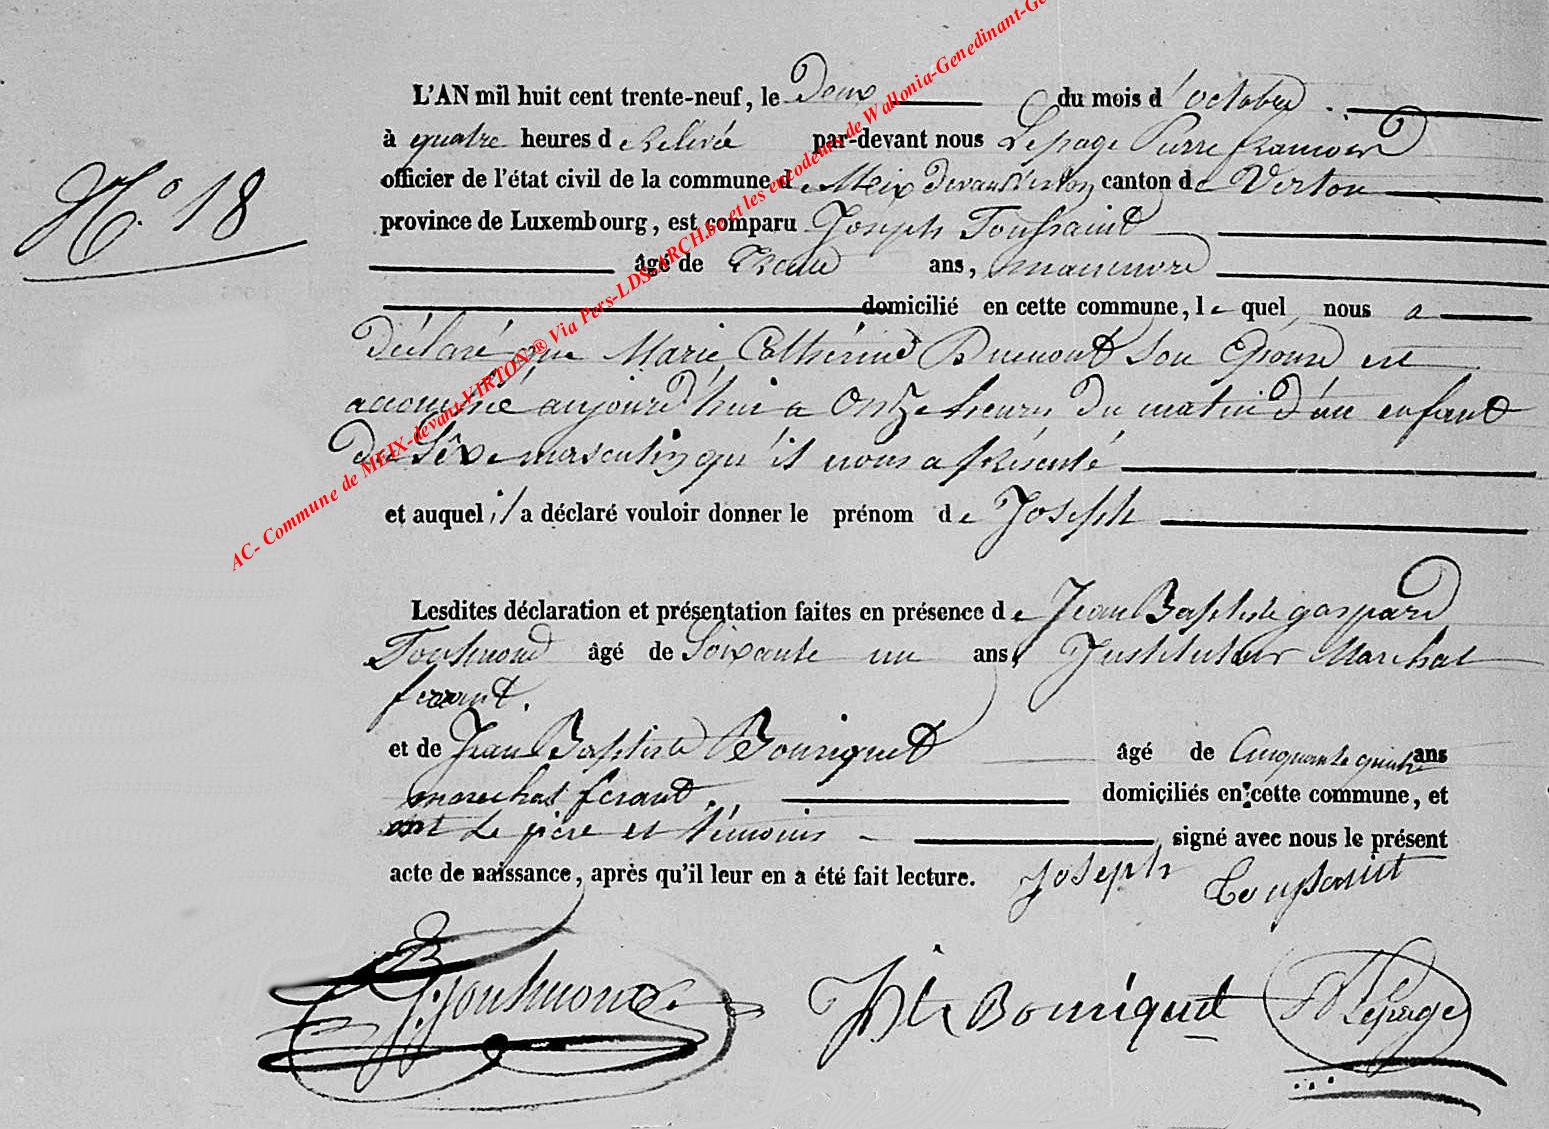 AC- Commune de MEIX-devant-VIRTON® Via Pers-LDS-ARCH.be et les encodeurs de Wallonia-Genedinant-Ge
N.° 18
L'AN mil huit cent trente-neuf, le Deux du mois d'octobre.
à quatre heures de Relivée par-devant nous Lepage Pierre francois
officier de l'état civil de la commune de Meix Devant Virton canton de Virton
province de Luxembourg, est comparu Joseph Toussaint
âgé de ans, manœuvre
domicilié en cette commune, lequel nous a
Déclaré que Marie Cathérine Son Epouse est
accouchée aujourd'hui a Onze heures Du matin d'un enfant
Du Sêxe masculin qu'il nous a présenté
et auquel il a déclaré vouloir donner le prénom de Joseph
Lesdites déclaration et présentation faites en présence de Jean Baptiste gaspard
âgé de Soixante un ans, Instituteur Marchal
ferant.
et de Jean Baptiste Bouriquet âgé de Cinquante ans
marechal ferant. domiciliés en cette commune, et
ont Le pere et témoins signé avec nous le présent
acte de naissance, après qu'il leur en a été fait lecture. Joseph Toussaint
JBte Bouriquet Lepage